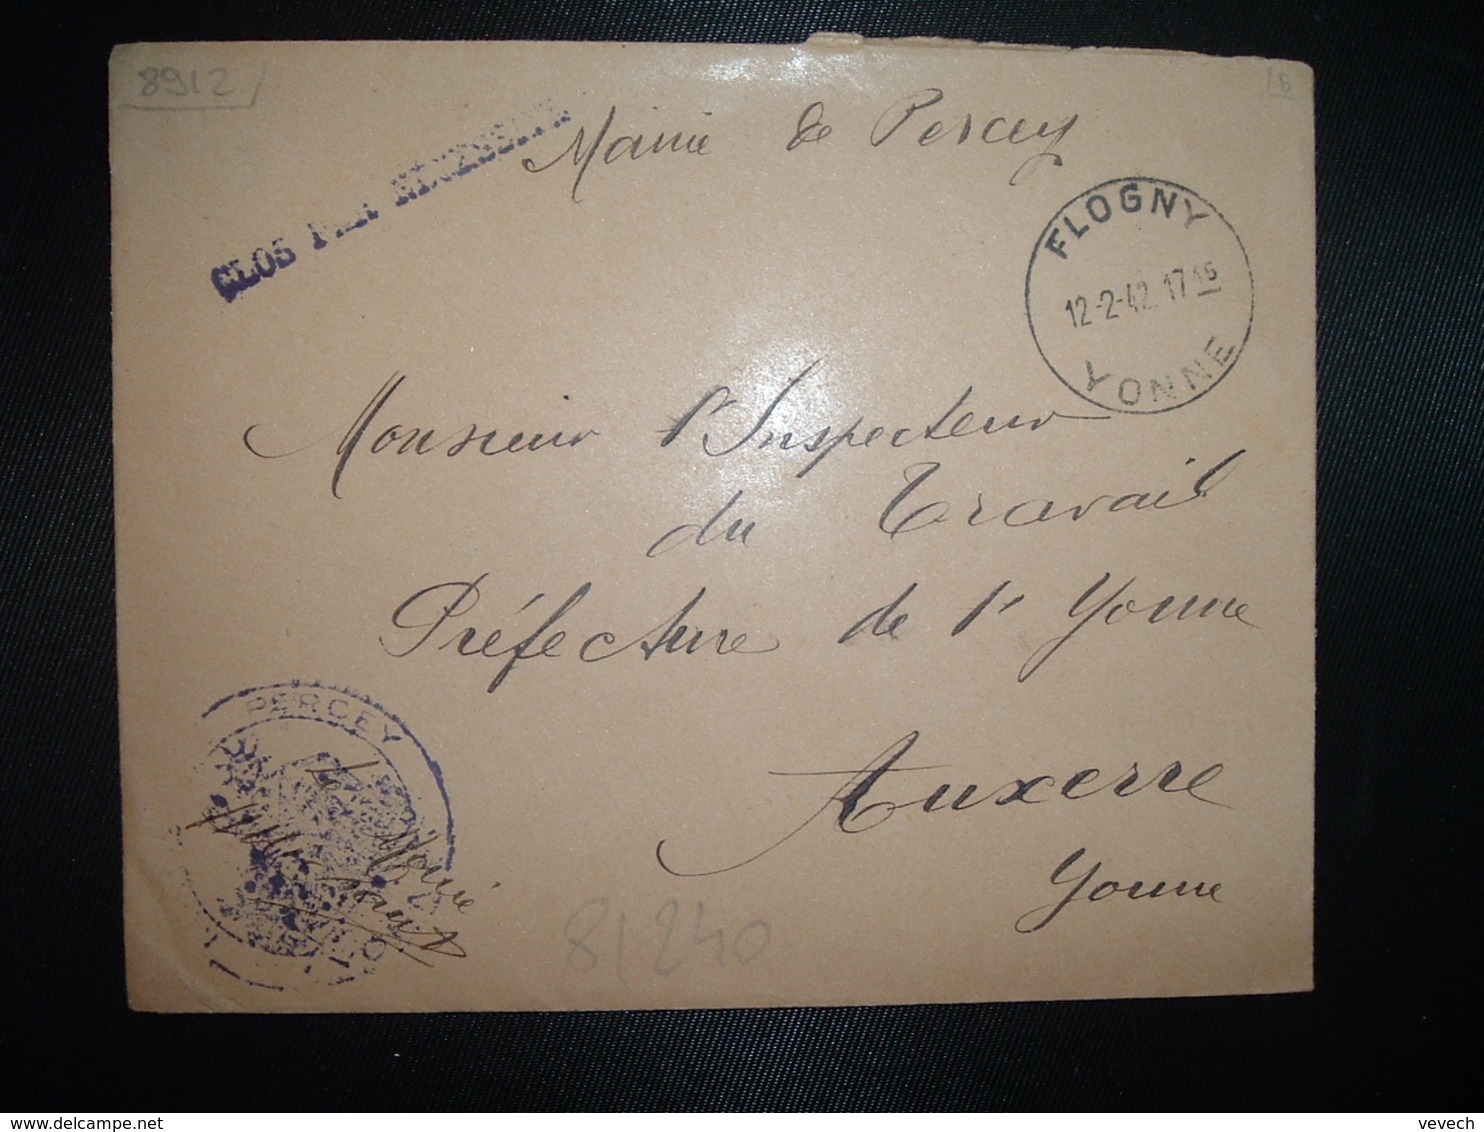 8912
1B
Mairie de Percey
CLOS PAR NECESSITE
FLOGNY
12-2-42. 17 45
YONNE
Monsieur l'Inspecteur
du Travail
Préfecture de l'Yonne
Auxerre
Yonne
PERCEY
Le Maire
81240
delcampe.net
vevech